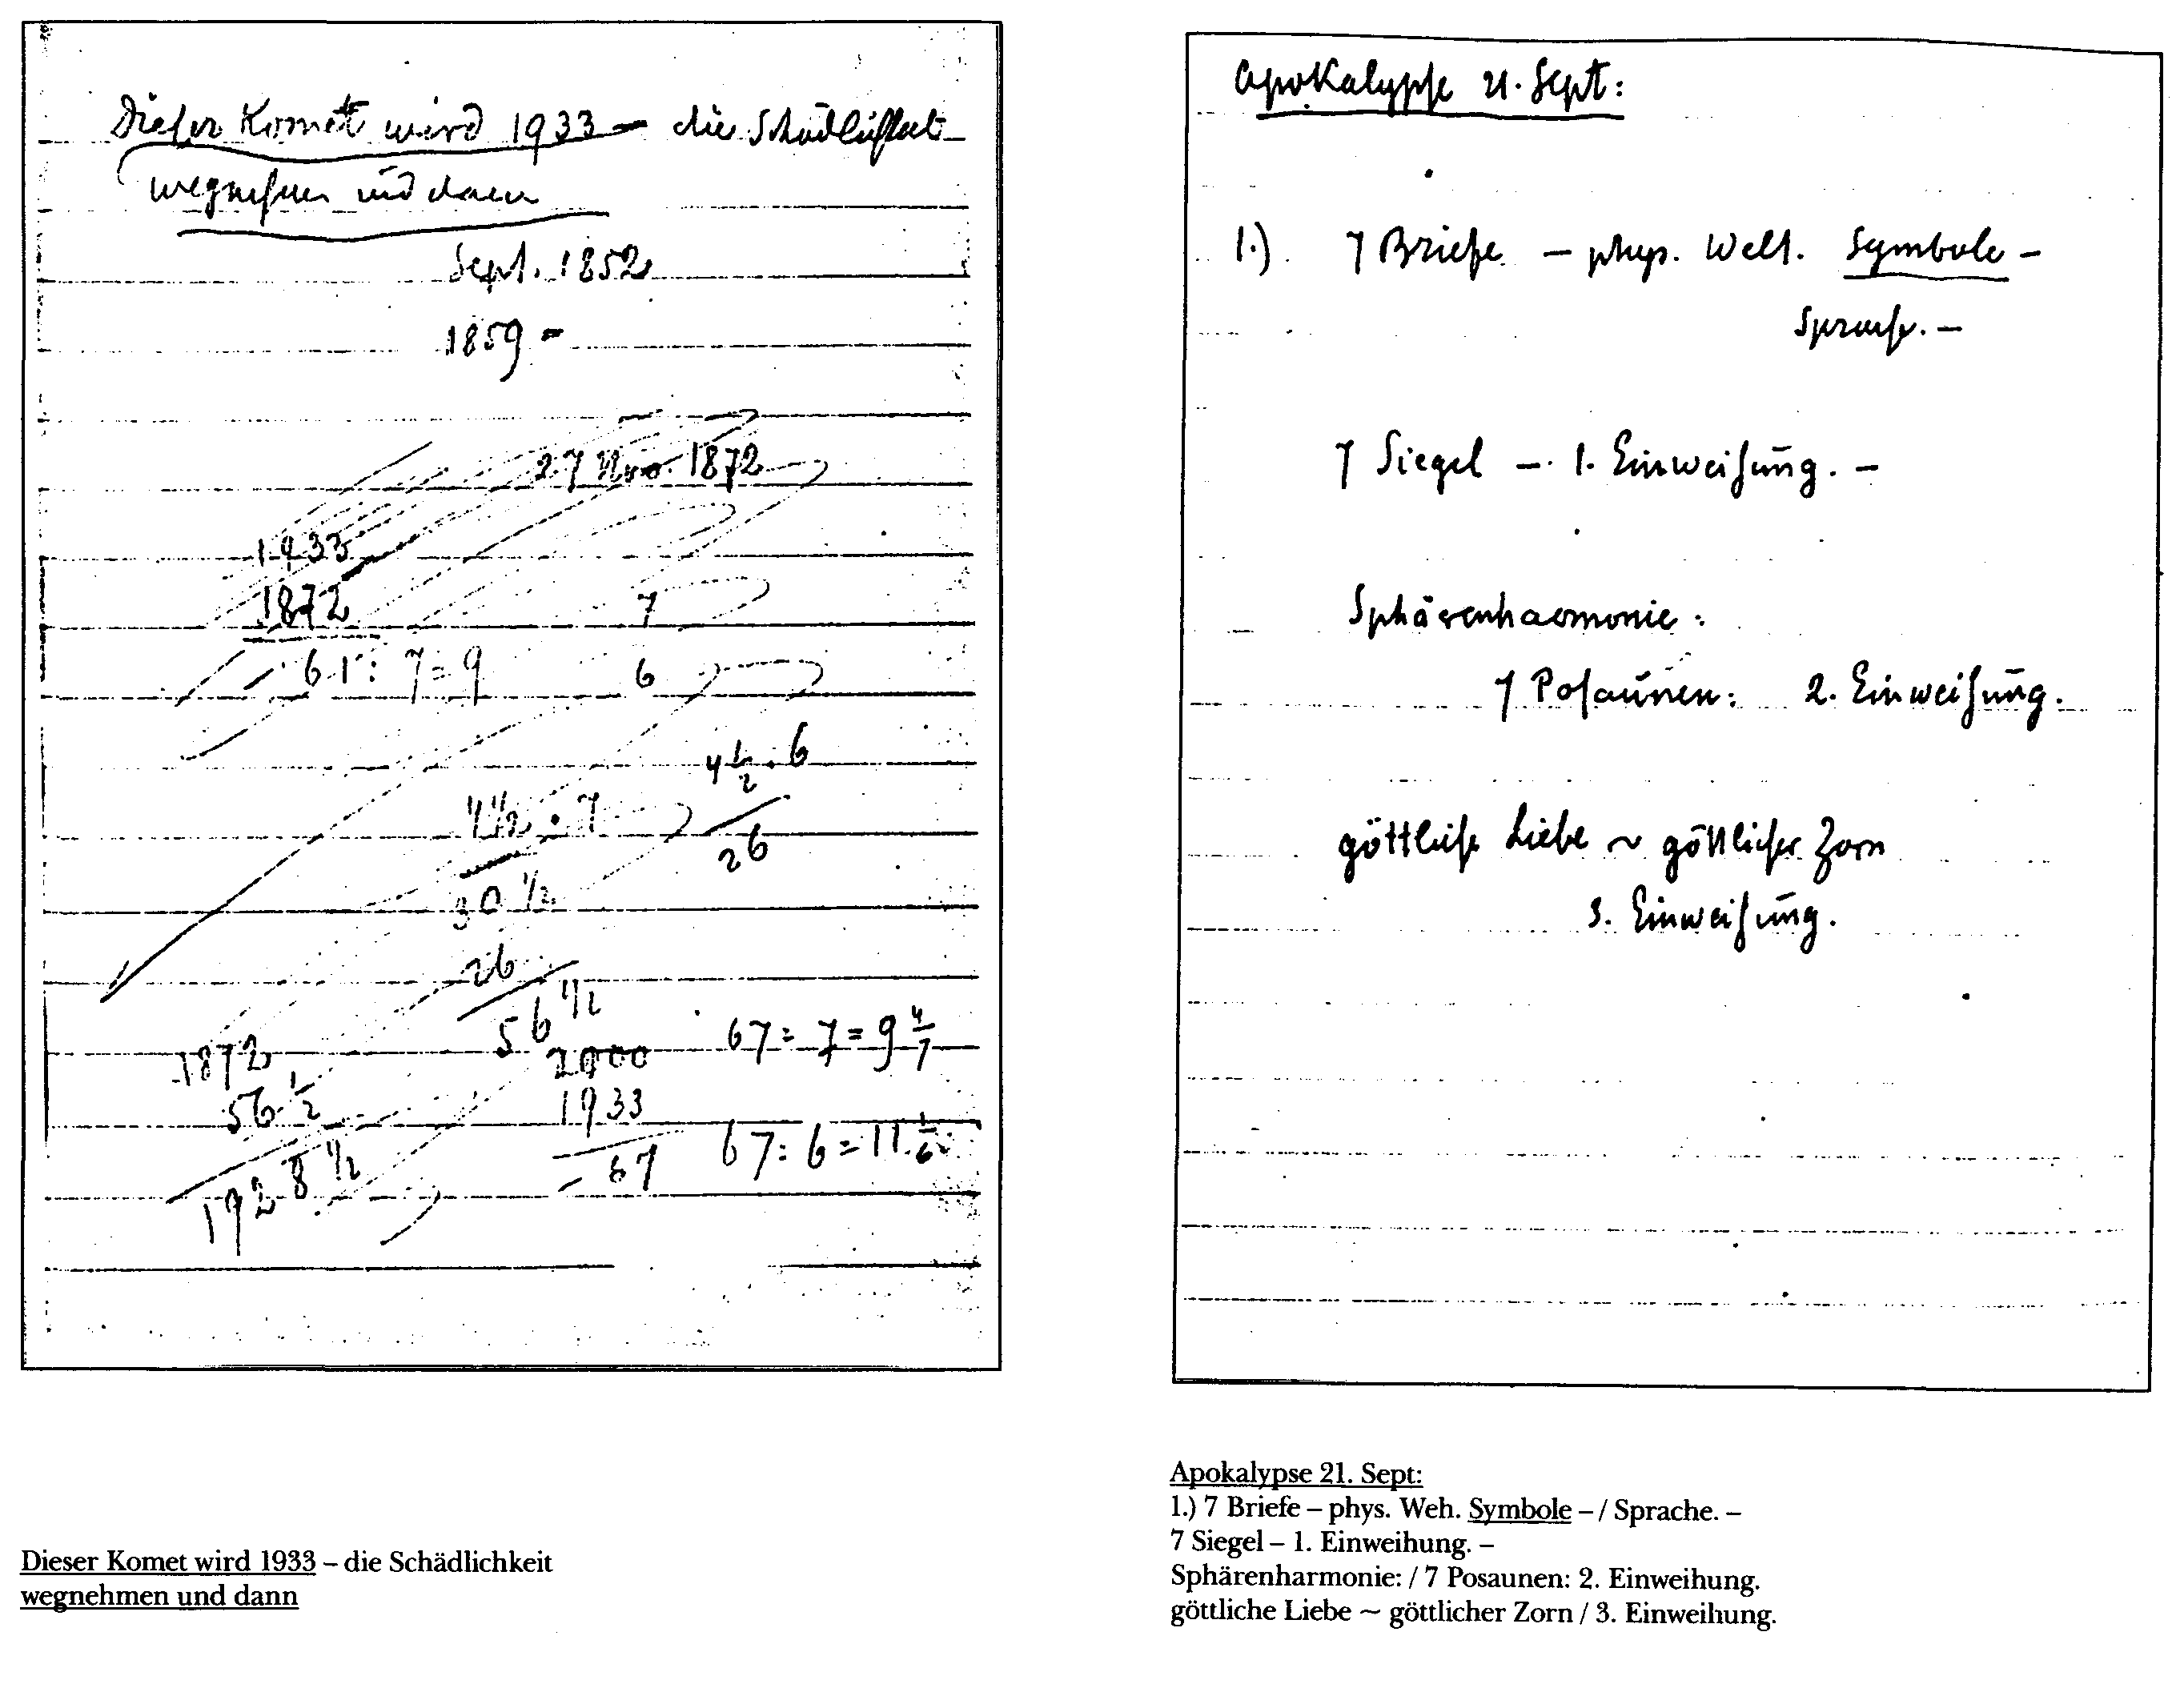 Dieser Komet wird 1933 – die Schädlichkeit
wegnehmen und dann
Sept. 1852
1859 –
27 Nov. 1872
1933
1872
61 : 7 = 9
7
6
4 1/2 · 6
26
4 1/2 · 7
30 1/2
26
56 1/2
1872
56 1/2
1928 1/2
2000
1933
67
67 : 7 = 9 4/7
67 : 6 = 11 1/6
Dieser Komet wird 1933 – die Schädlichkeit
wegnehmen und dann
Apokalypse 21. Sept:
1.) 7 Briefe – phys. Welt. Symbole –
Sprache. –
7 Siegel – 1. Einweihung. –
Sphärenharmonie:
7 Posaunen: 2. Einweihung.
göttliche Liebe ~ göttlicher Zorn
3. Einweihung.
Apokalypse 21. Sept:
1.) 7 Briefe – phys. Weh. Symbole – / Sprache. –
7 Siegel – 1. Einweihung. –
Sphärenharmonie: / 7 Posaunen: 2. Einweihung.
göttliche Liebe ~ göttlicher Zorn / 3. Einweihung.